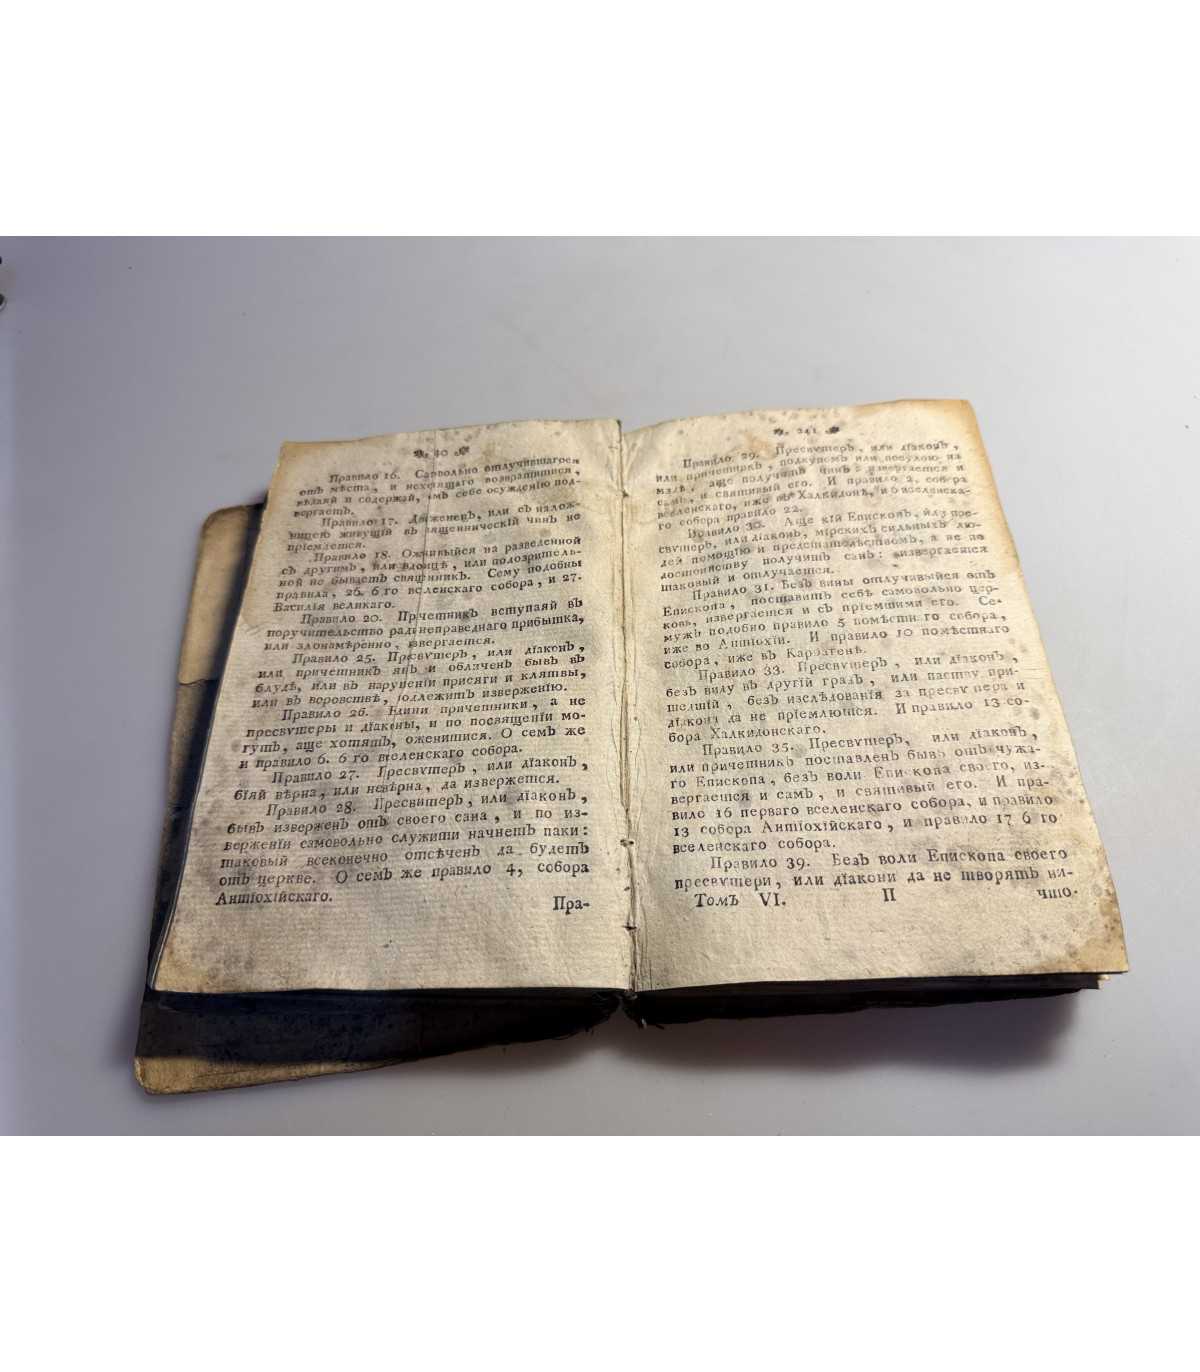 40
Правило 16. Самовольно отлучившагося
отъ мѣста, и нехотящаго возвратитися,
вѣдаяй и содержай, имъ себе осужденїю под-
вергаетъ.
Правило 17. Двоженецъ, или съ налож-
ницею живущїй въ священническїй чинъ не
прїемлется.
Правило 18. Оженивыйся на разведенной
съ другимъ, или вдовицѣ, или подозритель-
ной не бываетъ священникъ. Сему подобны
правила, 26. 6 го вселенскаго собора, и 27.
Василїя великаго.
Правило 20. Причетникъ вступаяй въ
поручительство ради неправеднаго прибытка,
или злонамѣренно, извергается.
Правило 25. Пресвѵтеръ, или дїаконъ,
или причетникъ ятъ и обличенъ бывъ въ
блудѣ, или въ нарушенїи присяги и клятвы,
или въ воровствѣ, подлежитъ изверженїю.
Правило 26. Едини причетники, а не
пресвѵтеры и дїаконы, и по посвященїи мо-
гутъ, аще хотятъ, оженитися. О семъ же
и правило 6. 6 го вселенскаго собора.
Правило 27. Пресвѵтеръ, или дїаконъ,
бїяй вѣрна, или невѣрна, да извержется.
Правило 28. Пресвитеръ, или дїаконъ,
бывъ изверженъ отъ своего сана, и по из-
верженїи самовольно служити начнетъ паки:
таковый всеконечно отсѣченъ да будетъ
отъ церкве. О семъ же правило 4, собора
Антїохїйскаго.
Пра-
241
Правило 29. Пресвѵтеръ, или дїаконъ,
или причетникъ, подкупомъ или посулою на
мздѣ, аще получитъ чинъ: извергается и
самъ, и святивый его. И правило 2, собора
вселенскаго, иже въ Халкидонѣ, и 6 вселенска-
го собора правило 22.
Правило 30. Аще кїй Епископъ, или пре-
свѵтеръ, или дїаконъ, мїрскихъ сильныхъ лю-
дей помощїю и предстательствомъ, а не по
достоинству получитъ санъ: извергается
таковый и отлучается.
Правило 31. Безъ вины отлучивыйся отъ
Епископа, поставитъ себѣ самовольно цер-
ковь, извергается и съ прїемшими его. Се-
мужъ подобно правило 5 помѣстнаго собора,
иже во Антїохїи. И правило 10 помѣстнаго
собора, иже въ Карѳагенѣ.
Правило 33. Пресвѵтеръ, или дїаконъ,
безъ виду въ другїй градъ, или паству при-
шедшїй, безъ изслѣдованїя за пресвѵтера и
дїакона да не прїемлются. И правило 13 со-
бора Халкидонскаго.
Правило 35. Пресвѵтеръ, или дїаконъ,
или причетникъ поставленъ бывъ отъ чужа-
го Епископа, безъ воли Епископа своего, из-
вергается и самъ, и святивый его. И пра-
вило 16 перваго вселенскаго собора, и правило
13 собора Антїохїйскаго, и правило 17 6 го
вселенскаго собора.
Правило 39. Безъ воли Епископа своего
пресвѵтери, или дїакони да не творятъ ни-
Томъ VI. П что.